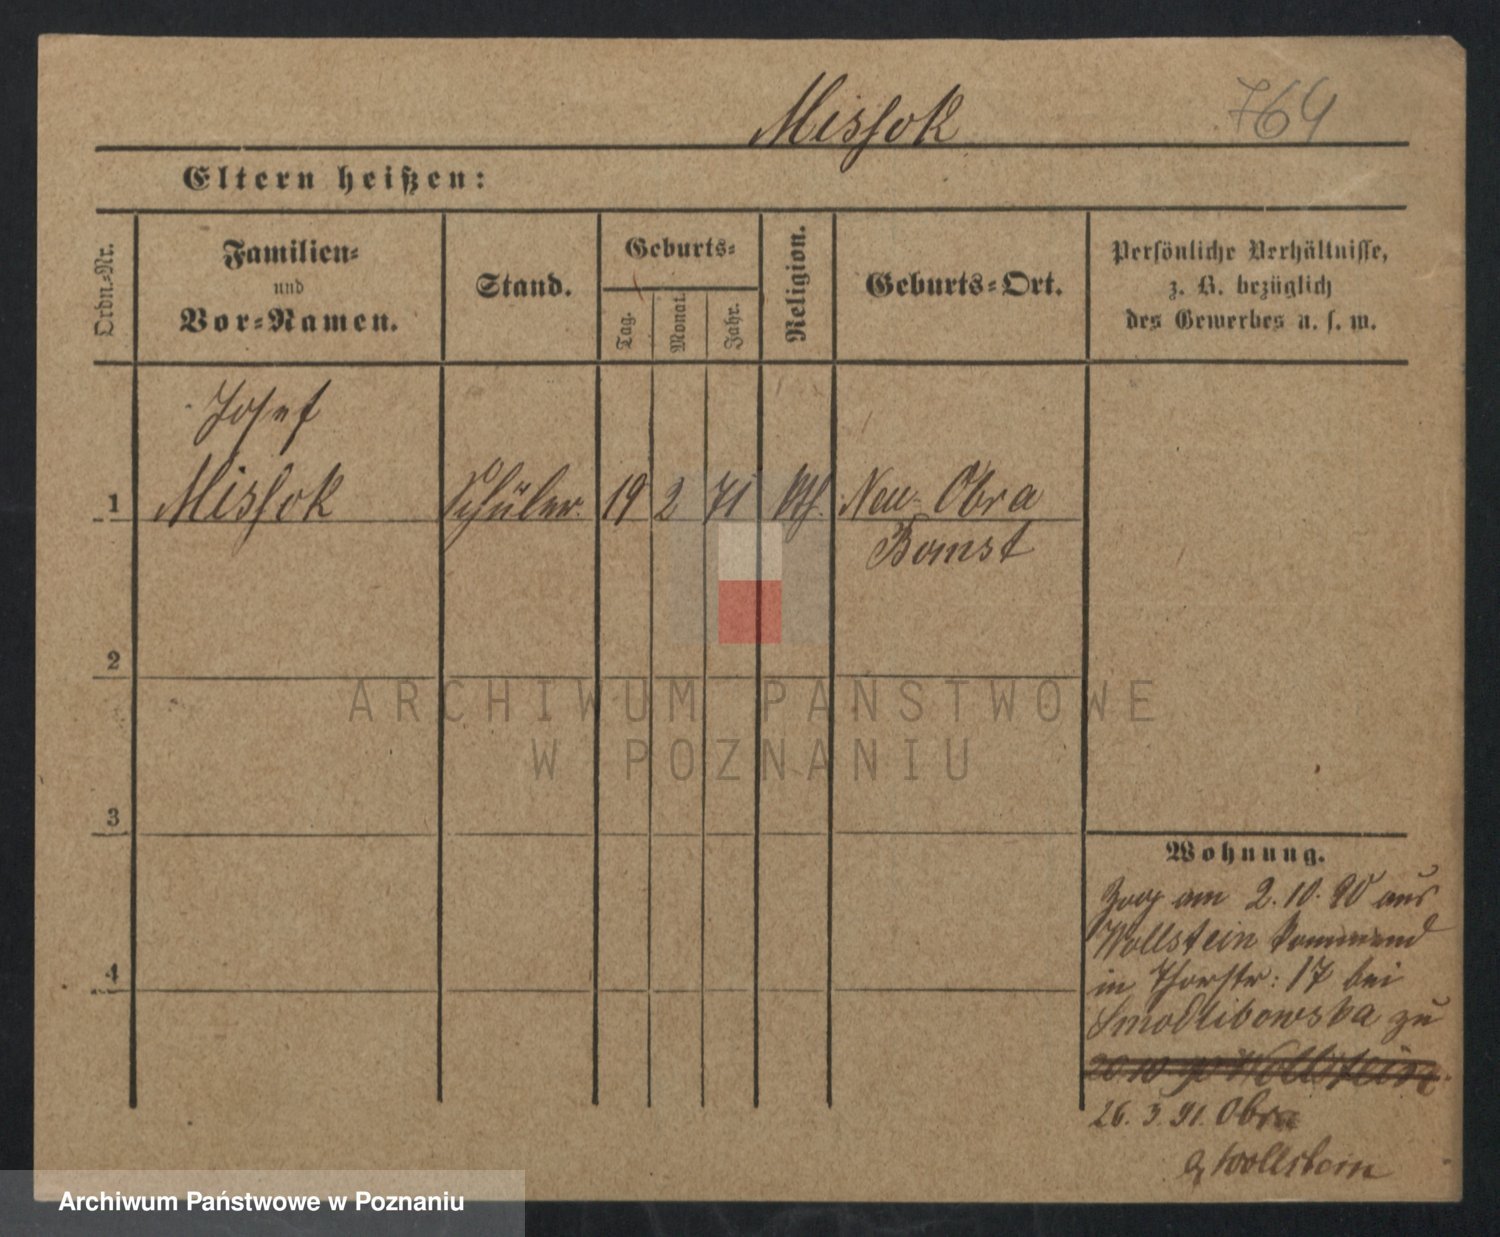 Missok 764
Eltern heißen:
Ordn.-Nr.
Familien-
und
Vor-Namen.
Stand.
Geburts-
Tag.
Monat.
Jahr.
Religion.
Geburts-Ort.
Persönliche Verhältnisse,
z. B. bezüglich
des Gewerbes u. s. w.
Josef
1 Missok Schüler 19 2 71 kth. Neu-Obra
Bomst
2
3
4
ARCHIWUM PAŃSTWOWE
W POZNANIU
Wohnung.
Zog am 2.10.90 aus
Wollstein kommend
in Thorstr: 17 bei
Smodlibowska zu
20.10.90 Wollstein
26.3.91. Obra
Wollstein
Archiwum Państwowe w Poznaniu